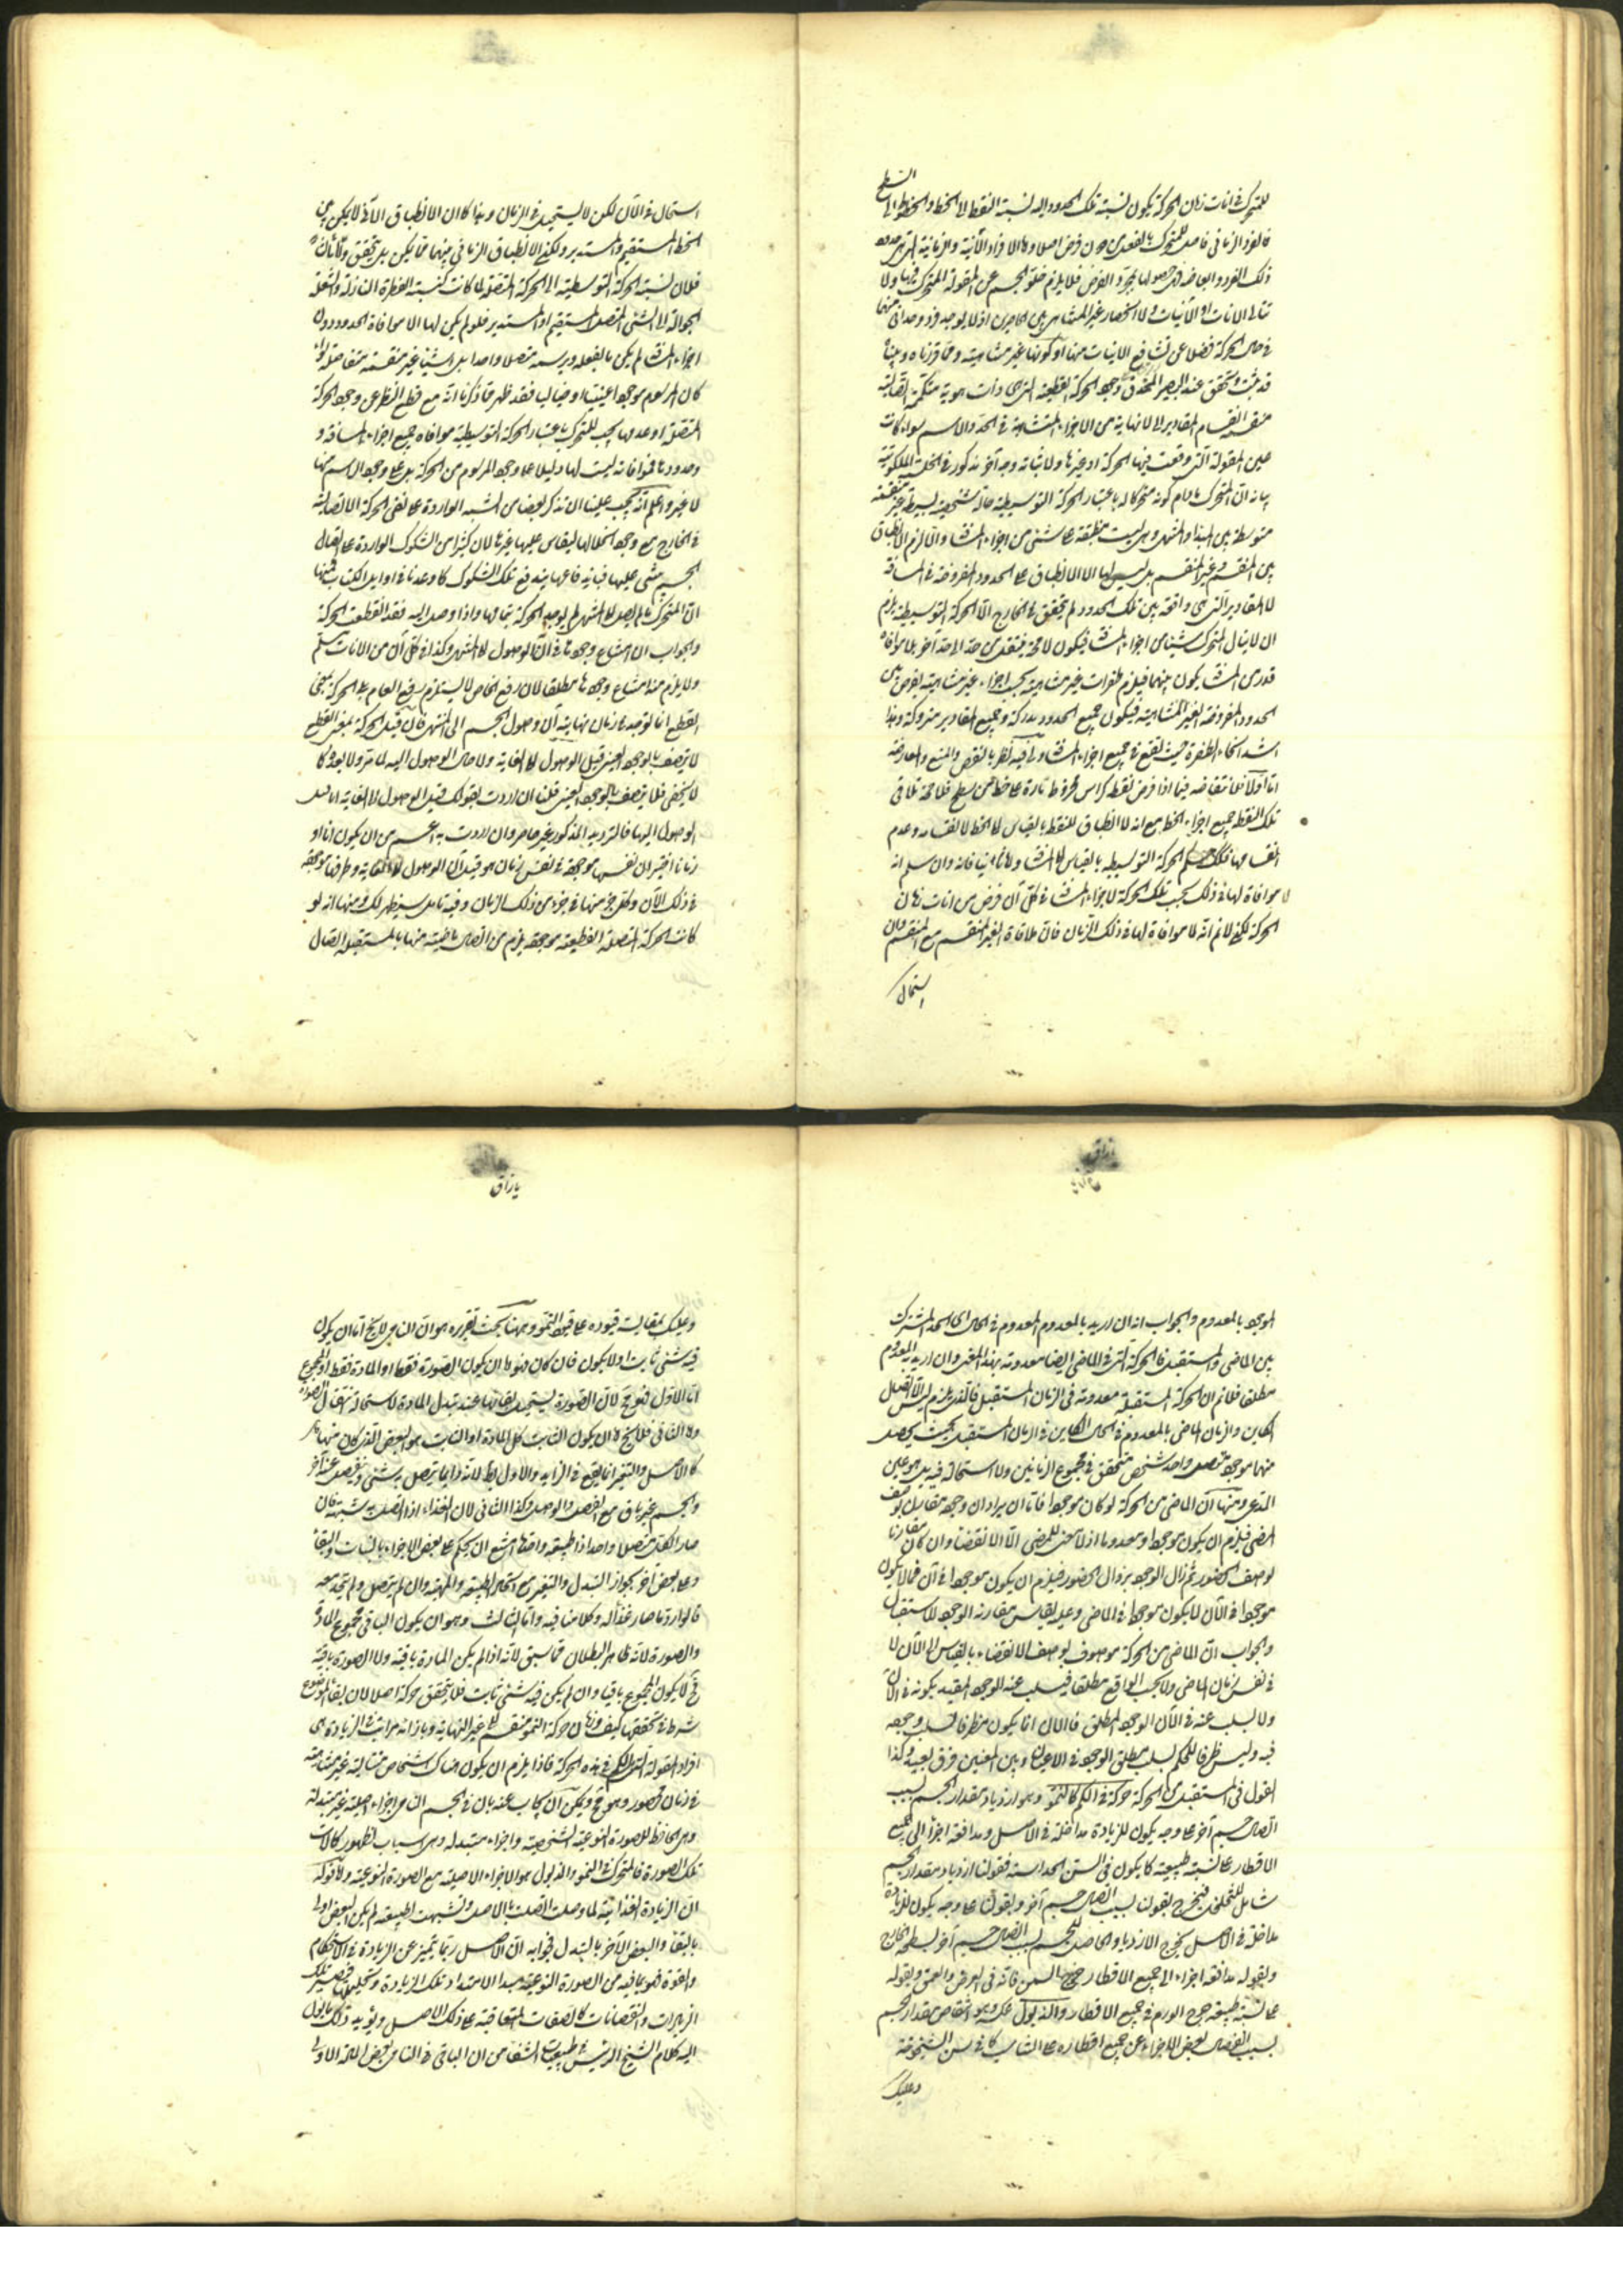 للمتحرك في آنات زمان الحركة يكون نسبة تلك الحدود اليه نسبة النقط الى الخط والخطوط الى
السطح
فالفرد الزماني حاصل للمتحرك بالفعل من دون فرض اصلا واما الافراد الآنية والزمانية التي هي حدود
ذلك الفرد وابعاضه فهي حصولها بمجرد الفرض فلا يلزم خلو الجسم عن المقولة المتحرك فيها ولا
تتالي الآنات او الآنيات ولا انحصار غير المتناهي بين حاصرين اذ لا يوجد فرد وحداني منها
في حال الحركة فضلا عن تشافع الآنيات منها او كونها غير متناهية ومما قررناه وبيناه
قد ثبت وتحقق عند البصير المحدق وجود الحركة القطعية التي هي ذات هوية متكممة اتصالية
منقسمة انقسام المقادير الى لا نهاية من الاجزاء المتشابهة في الحد والاسم سواء كانت
عين المقولة التي وقعت فيها الحركة او غيرها ولاثباته وجه آخر مذكور في الخلسة الملكوتية
بيانه ان المتحرك ما دام كونه متحركا له باعتبار الحركة التوسطية حالة شخصية بسيطة غير منقسمة
متوسطة بين المبدأ والمنتهى وهي ليست منطبقة على شيء من اجزاء المسافة والا لزم الانطباق
بين المنقسم وغير المنقسم بل ليس لها الا الانطباق على الحدود المفروضة في المسافة
لا المقادير التي هي واقعة بين تلك الحدود فلو لم يتحقق في الخارج الا الحركة التوسطية يلزم
ان لا ينال المتحرك شيئا من اجزاء المسافة فيكون لا محالة ينتقل من حد الى حد آخر بلا موافاة
قدر من المسافة يكون بينهما فيلزم طفرات غير متناهية بحسب اجزاء غير متناهية تفرض بين
الحدود المفروضة الغير المتناهية فيكون جميع الحدود مدركة وجميع المقادير متروكة وهذا
اشد انحاء الطفرة حيث يقع في جميع اجزاء المسافة وفيه نظر بالنقض والمنع والمعارضة
اما اولا فلانتقاضه فيما اذا فرض نقطة كراس مخروط مارة على خط من سطح فلا محالة تلاقي
تلك النقطة جميع اجزاء الخط مع انه لا انطباق للنقطة بالقياس الى الخط لانقسامه وعدم
انقسامها فكذلك حكم الحركة التوسطية بالقياس الى المسافة واما ثانيا فانه وان سلم انه
لا موافاة لها في ذلك بحسب تلك الحركة لاجزاء المسافة في كل آن فرض من آنات زمان
الحركة لكن لا نم انه لا موافاة لها في ذلك الزمان فان ملاقاة الغير المنقسم مع المنقسم وان
استحال
استحال في الآن لكن لا يستحيل في الزمان وهذا كما ان الانطباق الآني لا يمكن بين
الخط المستقيم والمستدير ولكن الانطباق الزماني بينهما مما يمكن بل يتحقق واما ثالثا
فلان نسبة الحركة التوسطية الى الحركة المتصلة لما كانت كنسبة القطرة النازلة والشعلة
الجوالة الى الشيء المتصل المستقيم او المستدير فلو لم يكن لها الا موافاة الحدود دون
اجزاء المسافة لم يكن ما تفعله وترسمه متصلا واحدا بل اشياء غير منقسمة متفاصلة سواء
كان المرسوم موجودا عينيا او خياليا فقد ظهر مما ذكرنا انه مع قطع النظر عن وجود الحركة
المتصلة او عدمها يجب للمتحرك باعتبار الحركة التوسطية موافاة جميع اجزاء المسافة و
حدودها فموافاته ليست لها دليلا على وجود المرسوم من الحركة بل على وجود الراسم منها
لا غير واعلم انه يجب علينا ان نذكر بعضا من الشبه الواردة على نفي الحركة الاتصالية
في الخارج مع وجوه انحلالها ليقاس عليها غيرها لان كثيرا من الشكوك الواردة على اتصال
الجسم مبتنى عليها فبانهدامها يندفع تلك الشكوك كما وعدناه في اوايل الكتاب فمنها
ان المتحرك ما لم يصل الى المنتهى لم يوجد الحركة بتمامها واذا وصل اليه فقد انقطعت الحركة
والجواب ان امتناع وجودها في آن الوصول الى المنتهى وكذا في كل آن من الآنات مسلم
ولا يلزم منه امتناع وجودها مطلقا لان رفع الخاص لا يستلزم رفع العام بل الحركة بمعنى
القطع انما توجد في زمان نهايته آن وصول الجسم الى المنتهى فان قيل الحركة بمعنى القطع
لا يتصف بالوجود العيني قبل الوصول الى الغاية ولا حال الوصول اليه لما مر ولا بعده كما
لا يخفى فلا يتصف بالوجود العيني قلنا ان اردت بقولك قبل الوصول الى الغاية آنا قبل
الوصول اليها فالترديد المذكور غير حاصر وان اردت به اعم من ان يكون آنا او
زمانا اخترنا انها موجودة في نفس زمان هو قبل آن الوصول الى الغاية وطرفها موجود
في ذلك الآن وكل جزء منها في جزء من ذلك الزمان وفيه تأمل سيظهر لك ومنها انه لو
كانت الحركة المتصلة القطعية موجودة يلزم من اتصال ماضيته منها بالمستقبلة اتصال
يا رزاق
الموجود بالمعدوم والجواب انه ان اريد بالمعدوم المعدوم في الحال اي الحد المشترك
بين الماضي والمستقبل فالحركة التي في الماضي ايضا معدومة بهذا المعنى وان اريد به المعدوم
مطلقا فلا نم ان الحركة المستقبلة معدومة في الزمان المستقبل فالذي يلزم ليس الا اتصال
الكاين في الزمان الماضي بالمعدوم في الحال الكاين في الزمان المستقبل بحيث يحصل
منهما موجود متصل واحد شخصي متحقق في مجموع الزمانين ولا استحالة فيه بل هو عين
المدعى ومنها ان الماضي من الحركة لو كان موجودا فاما ان يراد ان وجوده مقارن لوصف
المضي فيلزم ان يكون موجودا ومعدوما اذ لا معنى للمضي الا الانقضاء وان كان مقارنا
لوصف الحضور ثم زال الوجود بزوال الحضور فيلزم ان يكون موجودا في آن فما لا يكون
موجودا في الآن لا يكون موجودا في الماضي وعليه يقاس مقارنة الوجود للاستقبال
والجواب ان الماضي من الحركة موصوف بوصف الانقضاء بالقياس الى الآن لا
في نفس زمان الماضي ولا بحسب الواقع مطلقا فيسلب عنه الوجود المقيد بكونه في الآن
ولا يسلب عنه في الآن الوجود المطلق فالآن انما يكون ظرفا لسلب وجوده
فيه وليس ظرفا للحكم بسلب مطلق الوجود في الاعيان وبين المعنيين فرق بعيد وكذا
القول في المستقبل من الحركة حركة في الكم كالنمو وهو ازدياد مقدار الجسم بسبب
اتصال جسم آخر على وجه يكون للزيادة مداخلة في الاصل ومدافعة اجزائه الى جميع
الاقطار على نسبة طبيعية كما يكون في السن الحداثة فقولنا ازدياد مقدار الجسم
شامل للتخلخل فيخرج بقولنا بسبب اتصال جسم آخر وبقولنا على وجه يكون للزيادة
مداخلة في الاصل يخرج الازدياد الحاصل للجسم بسبب اتصال جسم آخر بسطحه الخارج
وبقوله مدافعة اجزائه الى جميع الاقطار خرج السمن فانه في العرض والعمق وبقوله
على نسبة طبيعية خرج الورم في جميع الاقطار والذبول عكسه وهو انتقاص مقدار الجسم
بسبب انفصال بعض الاجزاء عن جميع اقطاره على التناسب كما في سن الشيخوخة
وعليك
يا رزاق
وعليك بمقايسة قيوده على قيود النمو وههنا بحث تقريره هو ان النامي لا يخ اما ان يكون
فيه شيء ثابت او لا يكون فان كان فهو اما ان يكون الصورة فقط او المادة فقط او المجموع
اما الاول فهو مح لان الصورة يستحيل بقائها عند تبدل المادة لاستحالة انتقال الصورة
واما الثاني فلا يخ اما ان يكون الثابت كل المادة او الثابت هو البعض الذي كان منها
كالاصل والتغير انما يقع في الزايد والاول بط لانه دايما يتصل به شيء وينفصل عنه آخر
والجسم غير باق مع الفصل والوصل وكذا الثاني لان الغذاء اذا اتصل به تشبه فان
صار الكل متصلا واحدا ذا طبيعة واحدة امتنع ان يحكم على بعض الاجزاء بالثبات والبقاء
وعلى بعض آخر بجواز التبدل والتغير مع اتحاد الطبيعة والمهية وان لم يتصل ولم يتحد معه
فالوارد ما صار غذاء له وكلامنا فيه واما الثالث وهو ان يكون الباقي مجموع المادة
والصورة لانه ظاهر البطلان مما سبق لانه اذا لم يكن المادة باقية ولا الصورة باقية
فح لا يكون المجموع باقيا وان لم يكن فيه شيء ثابت فلا يتحقق حركة اصلا لان بقاء الموضوع
شرط في تحققها كيف وزمان حركة النمو منقسم الى غير النهاية وبازائه مراتب الزيادة هي
افراد المقولة التي هي الكم في هذه الحركة فاذا يلزم ان يكون هناك اشخاص متتالية غير متناهية
في زمان محصور وهو مح ويمكن ان يجاب عنه بان في الجسم النامي اجزاء اصلية غير متبدلة
وهي الحافظ للصورة النوعية الشخصية واجزاء متبدلة وهي اسباب لظهور كمالات
تلك الصورة فالمتحرك في النمو والذبول هو الاجزاء الاصلية مع الصورة النوعية واما قوله
ان الزيادة الغذائية لما وصلت اتصلت بالاصل وتشبهت لطبيعته لم يكن البعض اولى
بالبقاء والبعض الآخر بالتبدل فجوابه ان الاصل ربما يتميز عن الزيادة في الاستحكام
والقوة فهو بما فيه من الصورة النوعية مبدأ لاستمداد تلك الزيادة وتحليلها فيصير تلك
الزيادات والنقصانات كالصفات المتعاقبة على ذلك الاصل ويؤيد ذلك ما يؤل
اليه كلام الشيخ الرئيس في طبيعيات الشفاء من ان الباقي في النامي بعض المادة الاولى